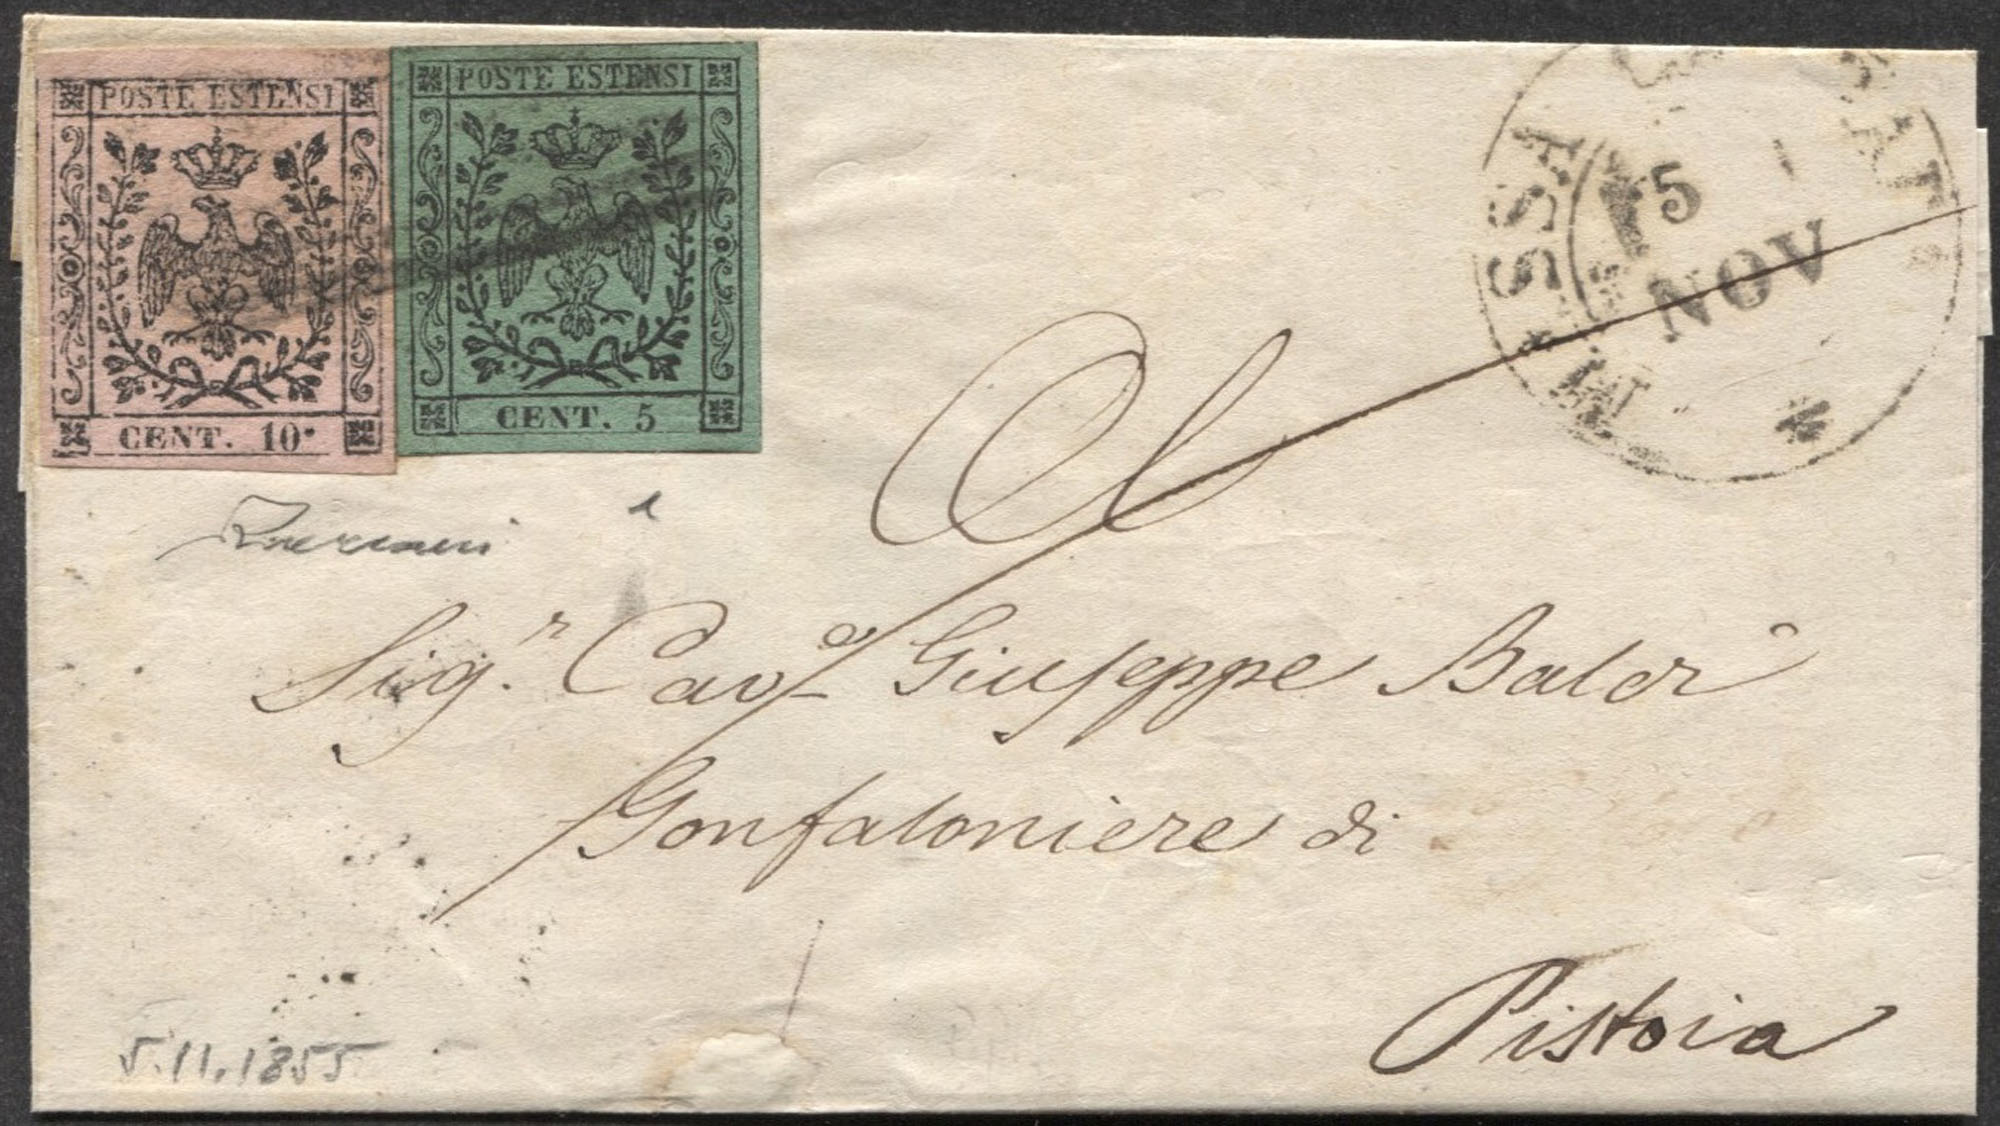 POSTE ESTENSI
CENT. 10.
POSTE ESTENSI
CENT. 5
MASSA
5
NOV
Al
Sig.r Cave Giuseppe Baldi
Gonfaloniere di
Pistoia
5.11.1855